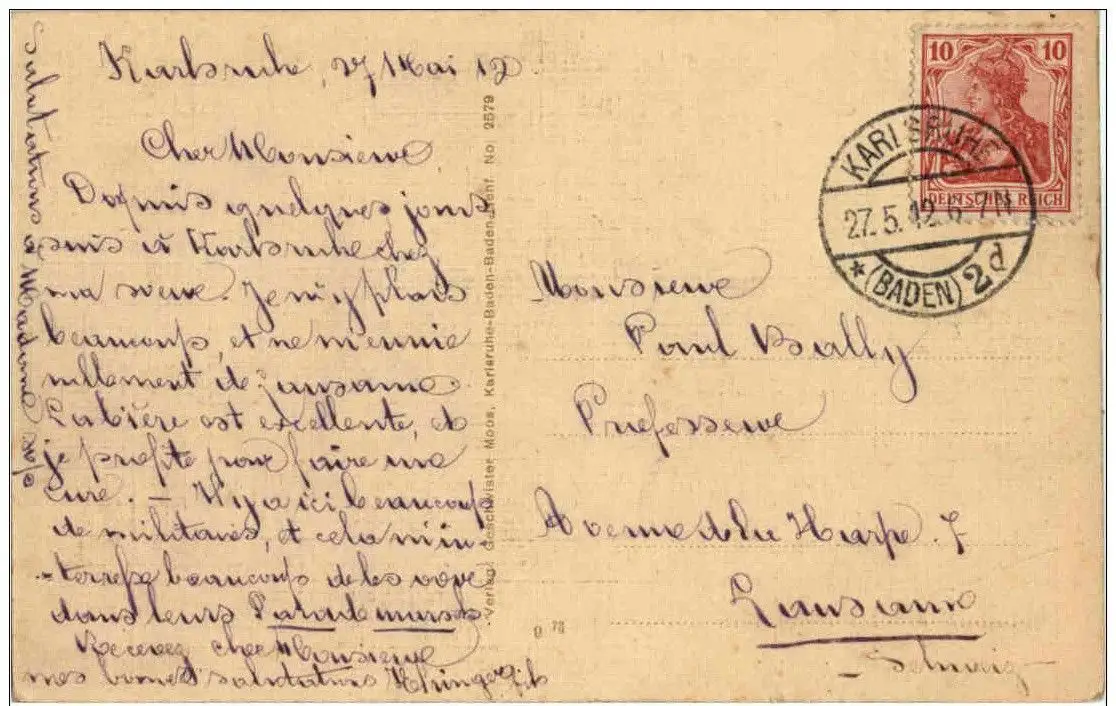 Karlsruhe, 27 Mai 12
Cher Monsieur
Depuis quelques jours
suis à Karlsruhe chez
ma sœur. Je m'y plais
beaucoup, et ne m'ennuie
nullement de Lausanne.
La bière est excellente, et
je profite pour faire ma
cure. — Il y a ici beaucoup
de militaires, et cela m'in-
-teresse beaucoup de les voir
dans leurs Paradenmarsch
Recevez cher Monsieur
mes bonnes salutations
Salutations à Madame svp
Verlag: Geschwister Moos, Karlsruhe-Baden-Badener No. 2579
10 10
DEUTSCHES REICH
KARLSRUHE
27.5.12. 6-7N
* (BADEN) 2d
Monsieur
Paul Bally
Professeur
Avenue de la Harpe 7
Lausanne
- Schweiz -
9 78